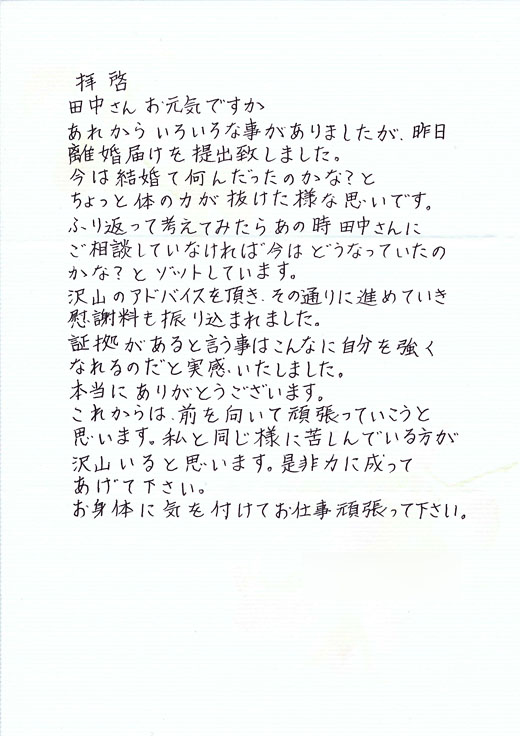 拝啓
田中さん お元気ですか
あれから いろいろな事がありましたが、昨日
離婚届けを提出致しました。
今は結婚て何んだったのかな?と
ちょっと体の力が抜けた様な思いです。
ふり返って考えてみたらあの時田中さんに
ご相談していなければ今はどうなっていたの
かな?とゾットしています。
沢山のアドバイスを頂き、その通りに進めていき
慰謝料も振り込まれました。
証拠があると言う事はこんなに自分を強く
なれるのだと実感いたしました。
本当にありがとうございます。
これからは、前を向いて頑張っていこうと
思います。私と同じ様に苦しんでいる方が
沢山いると思います。是非力に成って
あげて下さい。
お身体に気を付けてお仕事頑張って下さい。